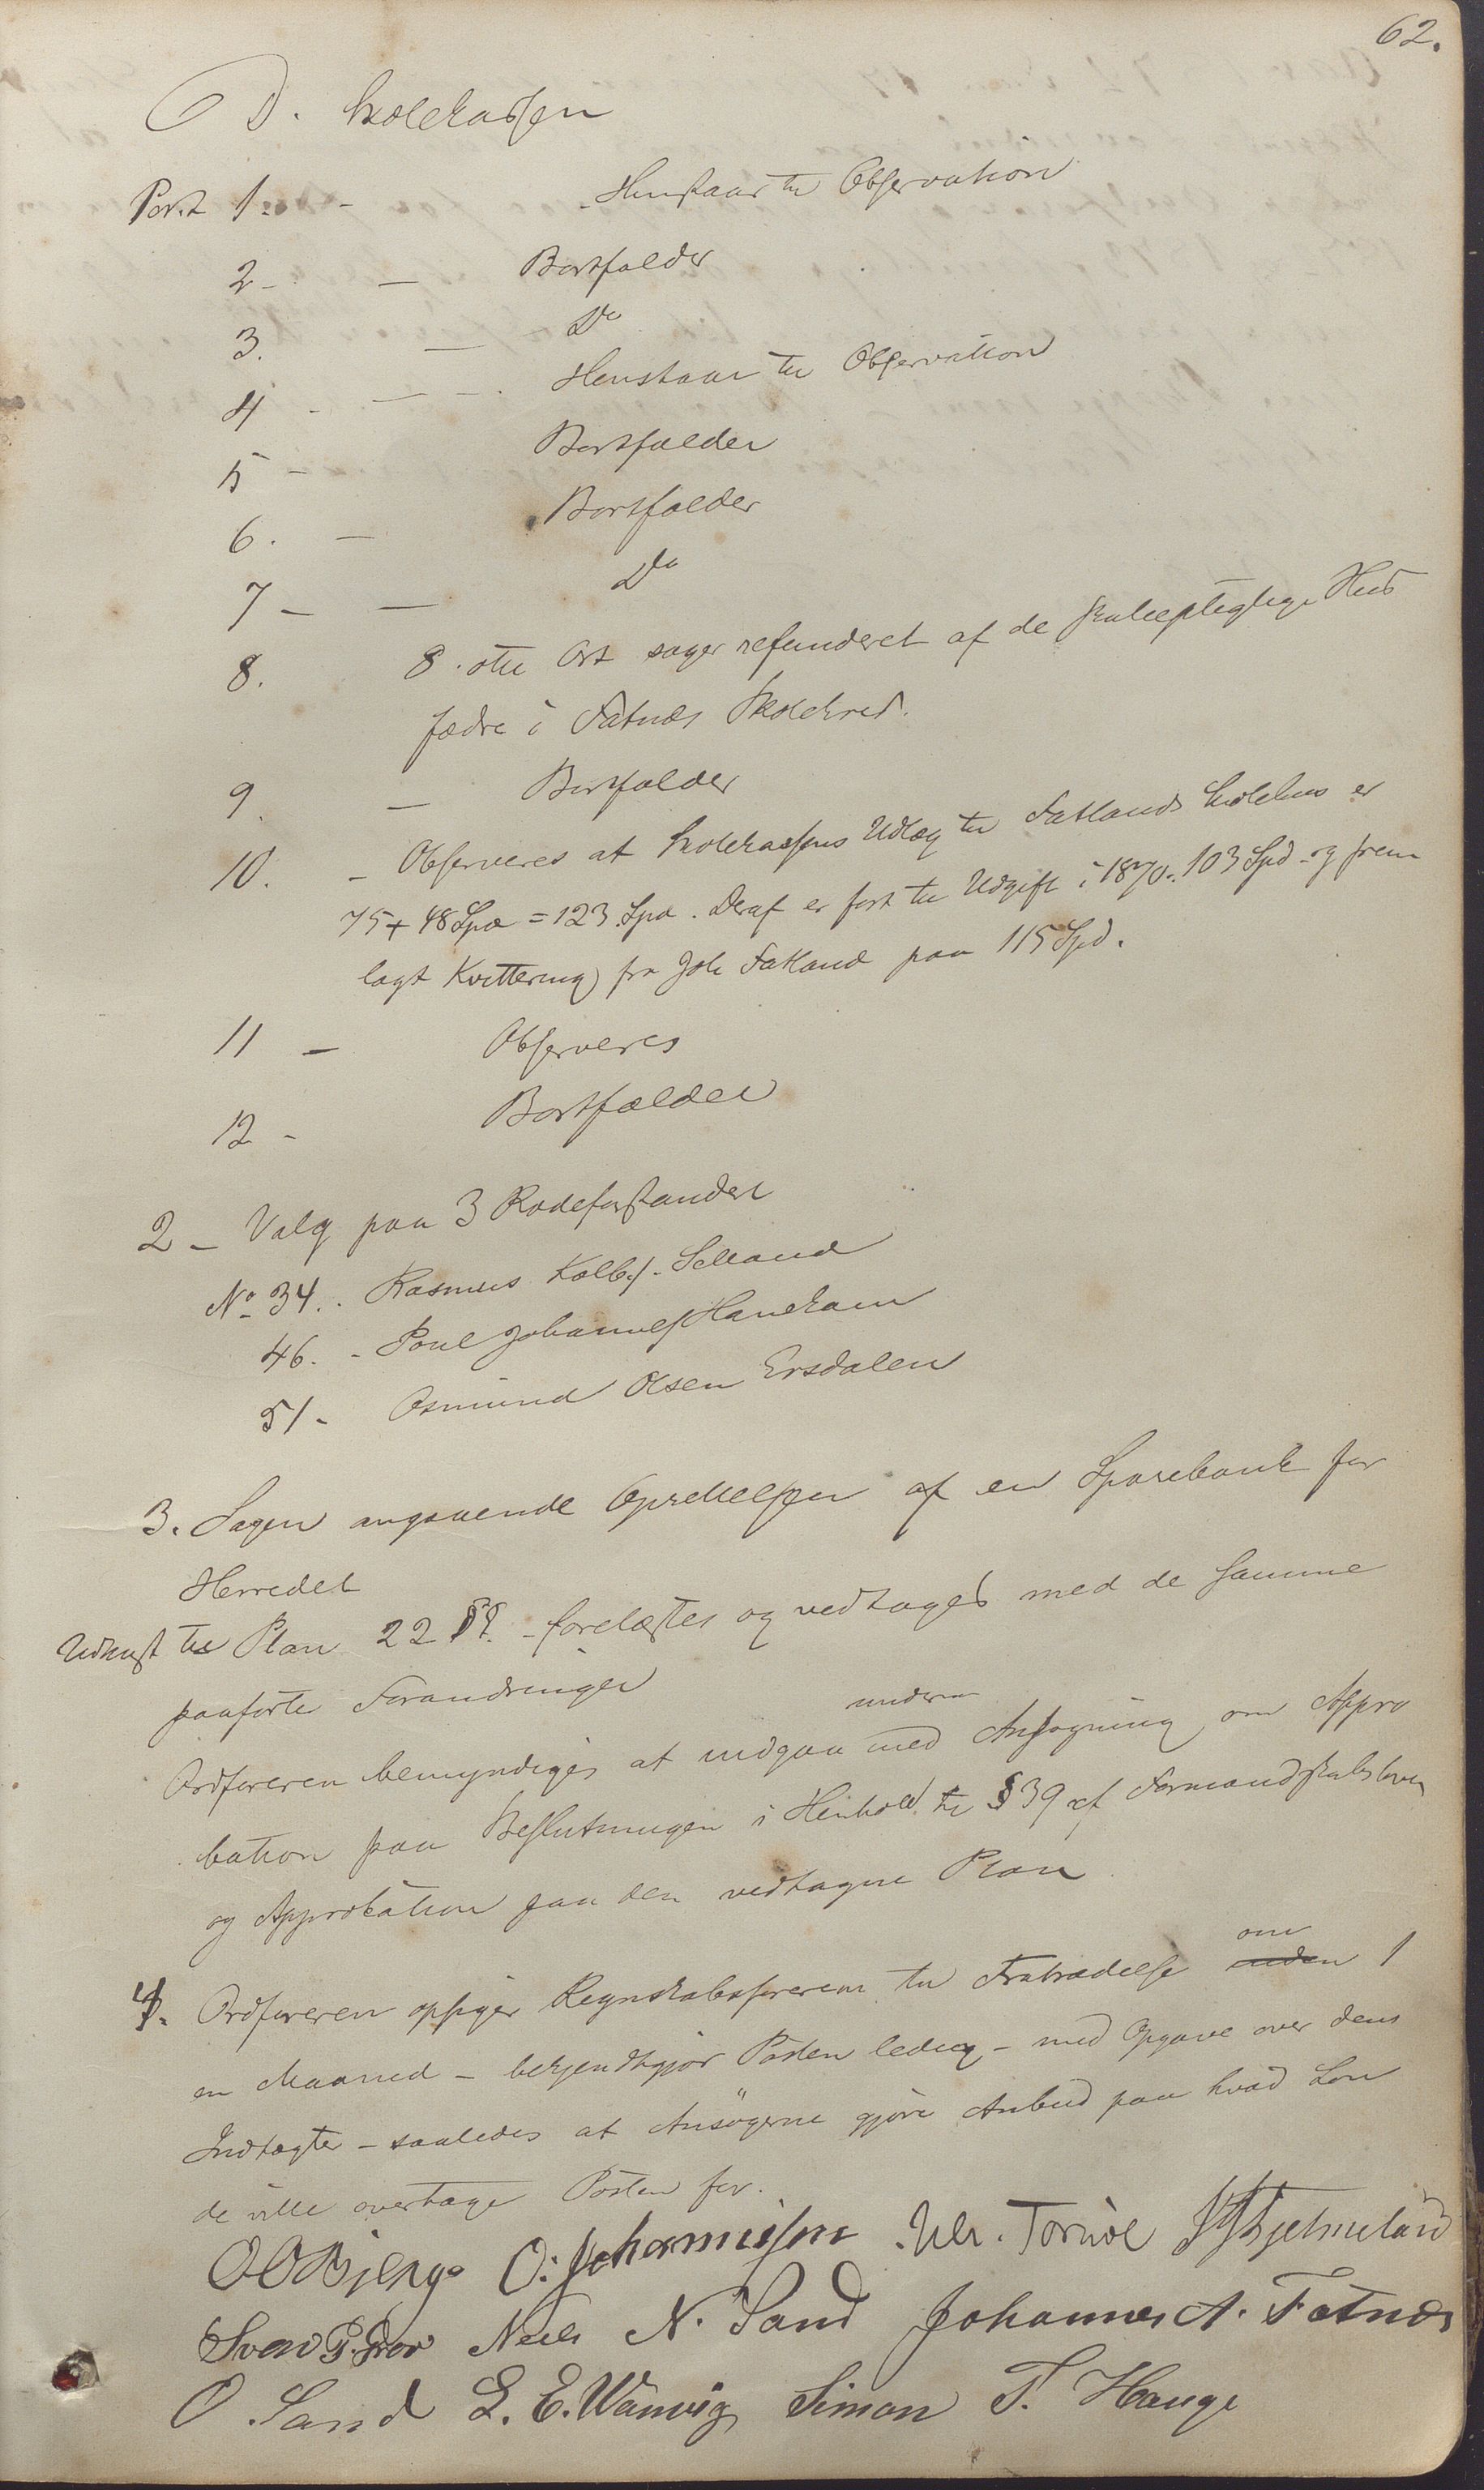 62.
D. Skolekassen
Post 1. - - Henstaar til Observation
2 - - Bortfalder
3. - Do
4 - - - Henstaar til Observation
5 - Bortfalder
6. - Bortfalder
7 - - Do
8. 8. otte Ort søges refunderet af de skolepligtige Hus
fædre i Fatnæs Skolekred.
9. - Bortfalder
10. - Observeres at Skolekassens Udlæg til Fatlands Skolehus er
75 + 48 Spd = 123 Spd. Deraf er ført til Udgift i 1870. 103 Spd - og frem
lagt Kvittering fra Joh Fatland paa 115 Spd.
11 - Observeres
12 - Bortfalder
2 - Valg paa 3 Rodeforstandere
No 34. Rasmus Kolbs. Selland
46. - Poul Johannes Hanekam
51 - Osmund Olsen Ersdalen
3. Sagen angaaende Oprettelsen af en Sparebank for
Herredet
Udkast til Plan 22 §§. - forelæstes og vedtages med de samme
paaførte Forandringer
Ordføreren bemyndiges at indgaa med Ansøgning om Appro
bation paa Beslutningen i Henhold til § 39 af Formandskabsloven
og Approbation paa den vedtagne Plan
4. Ordføreren opsiger Regnskabsføreren til Fratrædelse om uden 1
en Maaned - bekjendtgjør Posten ledig - med Opgave over dens
Indtægter - saaledes at Ansøgerne gjøre Anbud paa hvad Løn
de ville overtage Posten for.
O O Bjerge O. Johannessen Ulr. Tornöe Hjelmeland
Svend P. Grov Niels N. Sand Johannes A. Fatnæs
O. Sand L. E. Wanvig Simon T. Hauge